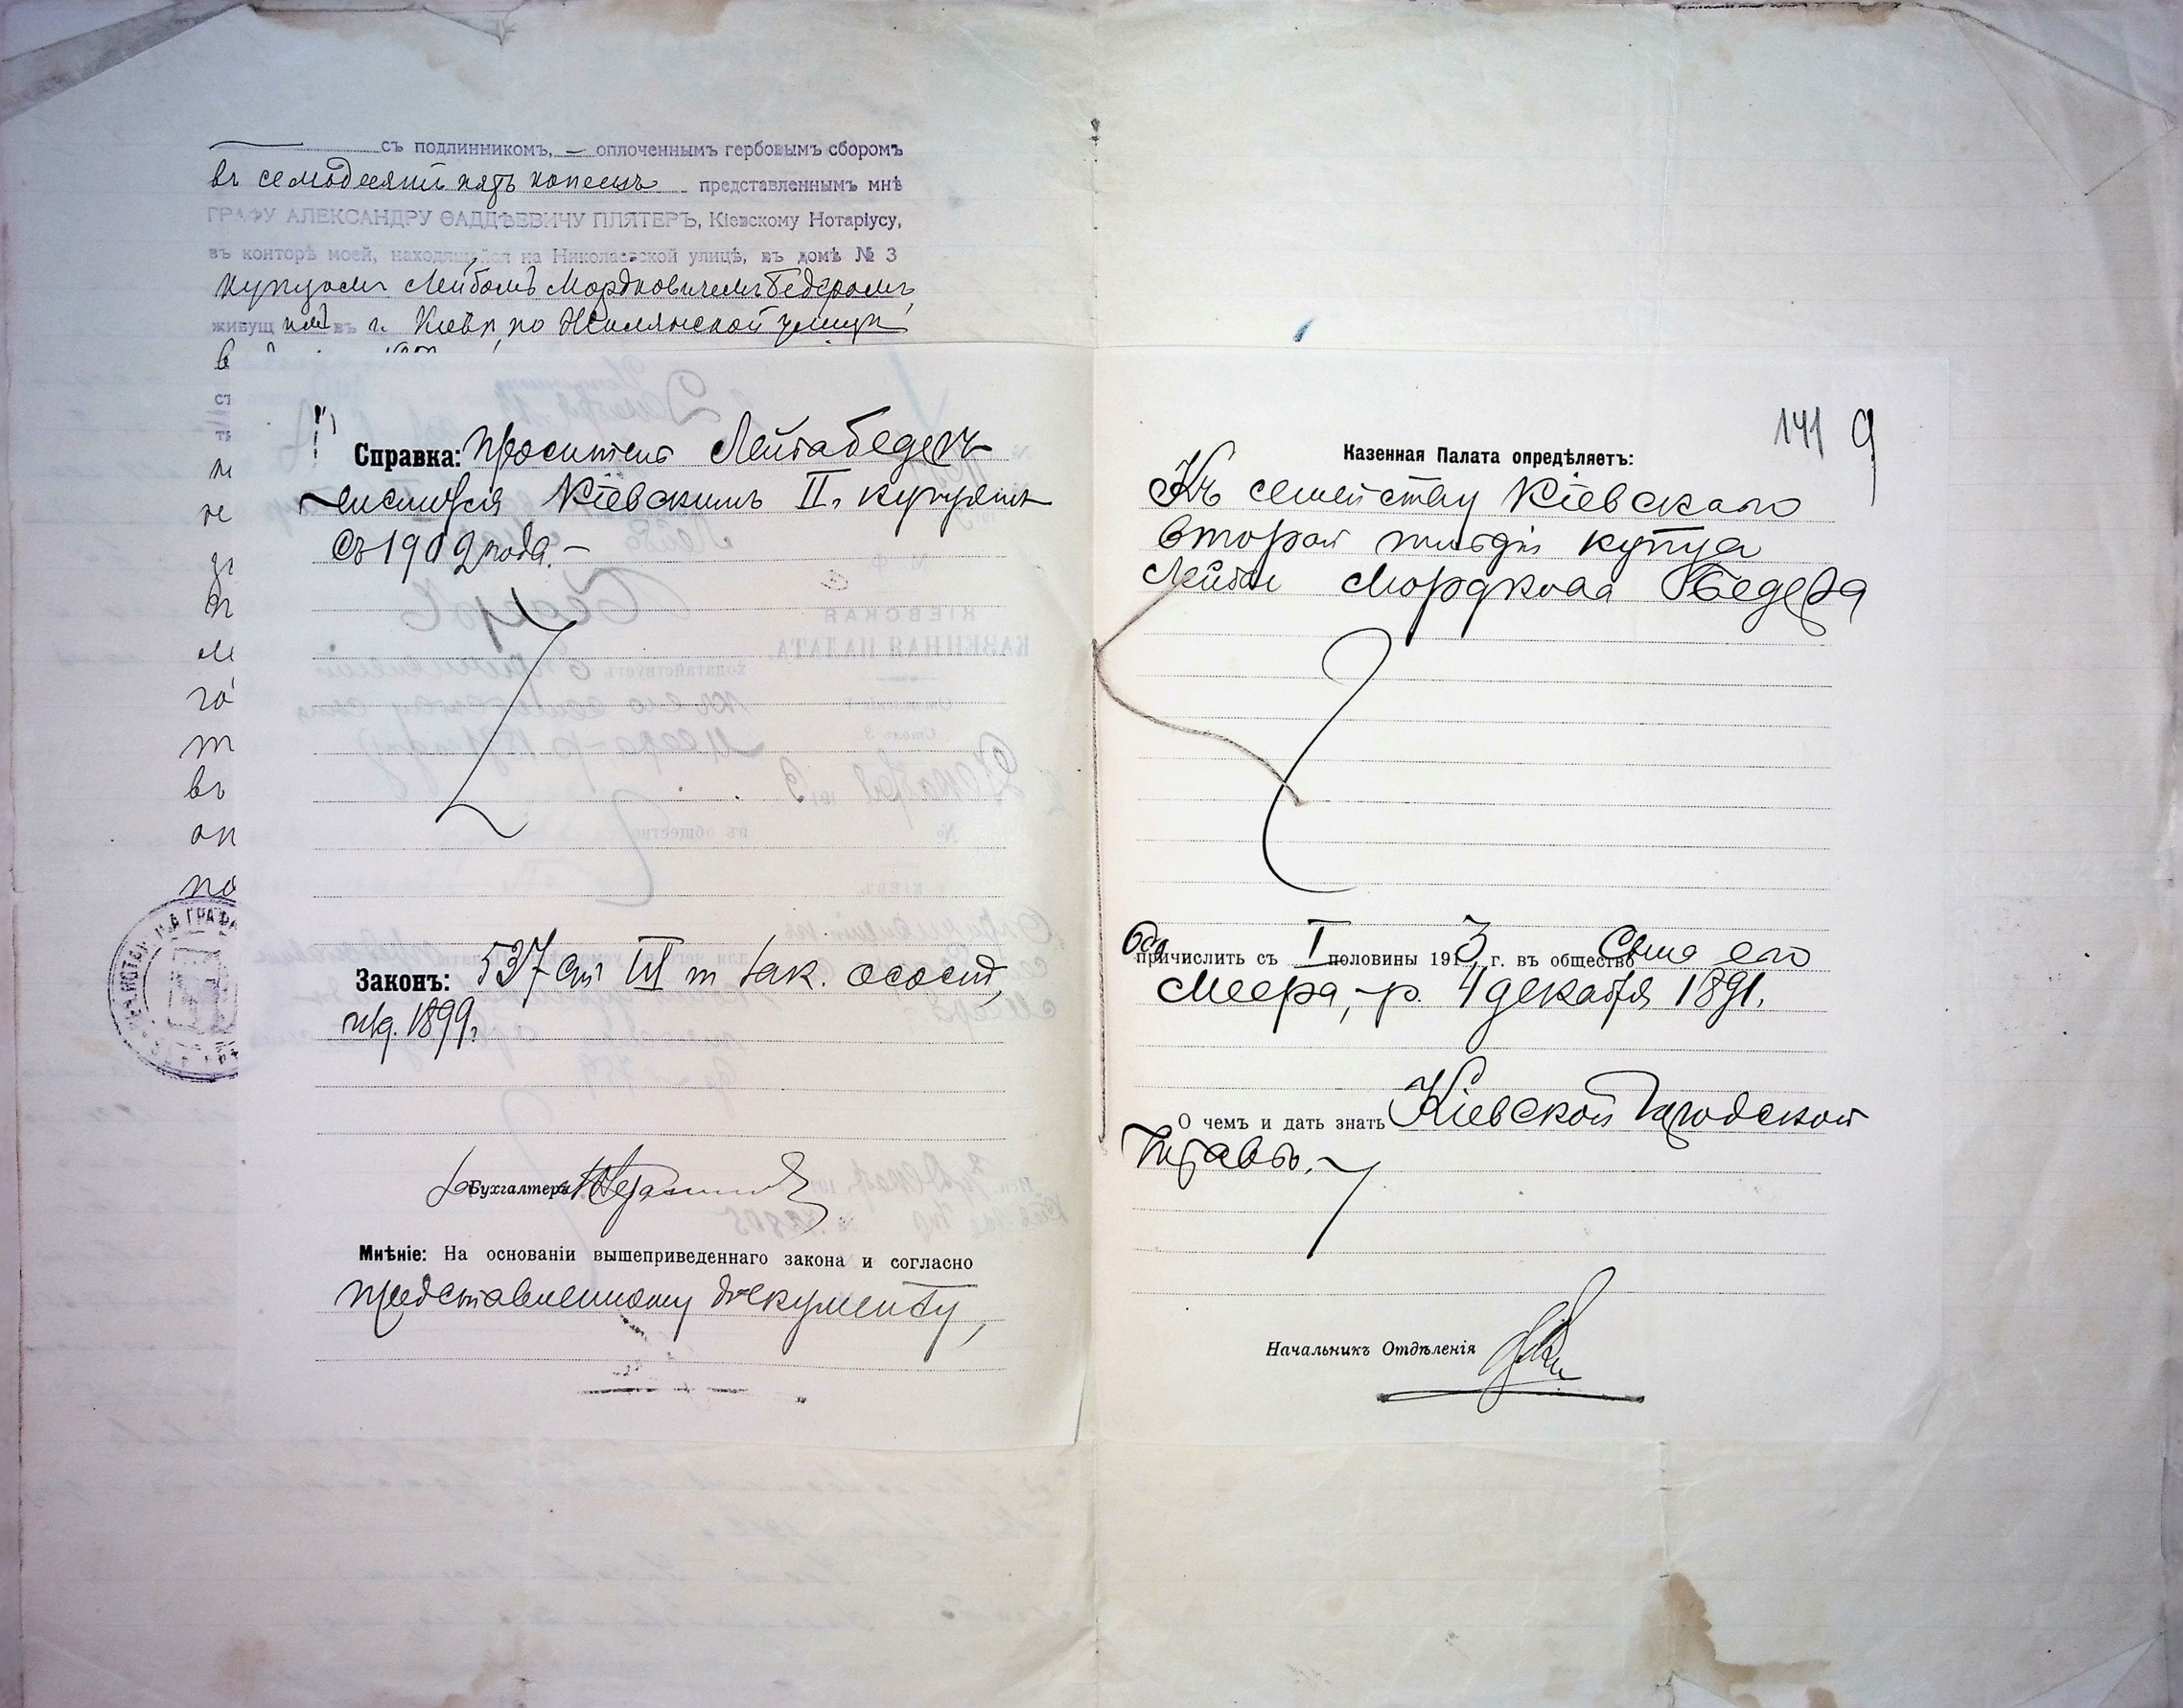 съ подлинникомъ, — оплоченнымъ гербовымъ сборомъ
въ семьдесятъ пять копеекъ представленнымъ мнѣ
ГРАФУ АЛЕКСАНДРУ ѲАДДѢЕВИЧУ ПЛЯТЕРЪ, Кіевскому Нотаріусу,
въ конторѣ моей, находящейся на Николаевской улицѣ, въ домѣ № 3
купцомъ Лейбомъ Мордковичемъ Бедеромъ,
живущимъ въ г. Кіевѣ, по Жилянской улицѣ
Справка: Проситель Лейба Бедеръ
числится Кіевскимъ II г. купцомъ
съ 1902 года. —
Законъ: 537 ст IX т Зак. о сост,
изд. 1899 г.
Бухгалтеръ
Мнѣніе: На основаніи вышеприведеннаго закона и согласно
представленному документу,
141 9
Казенная Палата опредѣляетъ:
Къ семейству Кіевскаго
второй гильдіи купца
Лейбы Мордкова Бедера
причислить съ I половины 1913 г. въ общество Сына его
Меера, -р. 4 декабря 1891.
О чемъ и дать знать Кіевской Городской
Управѣ. —
Начальникъ Отдѣленія